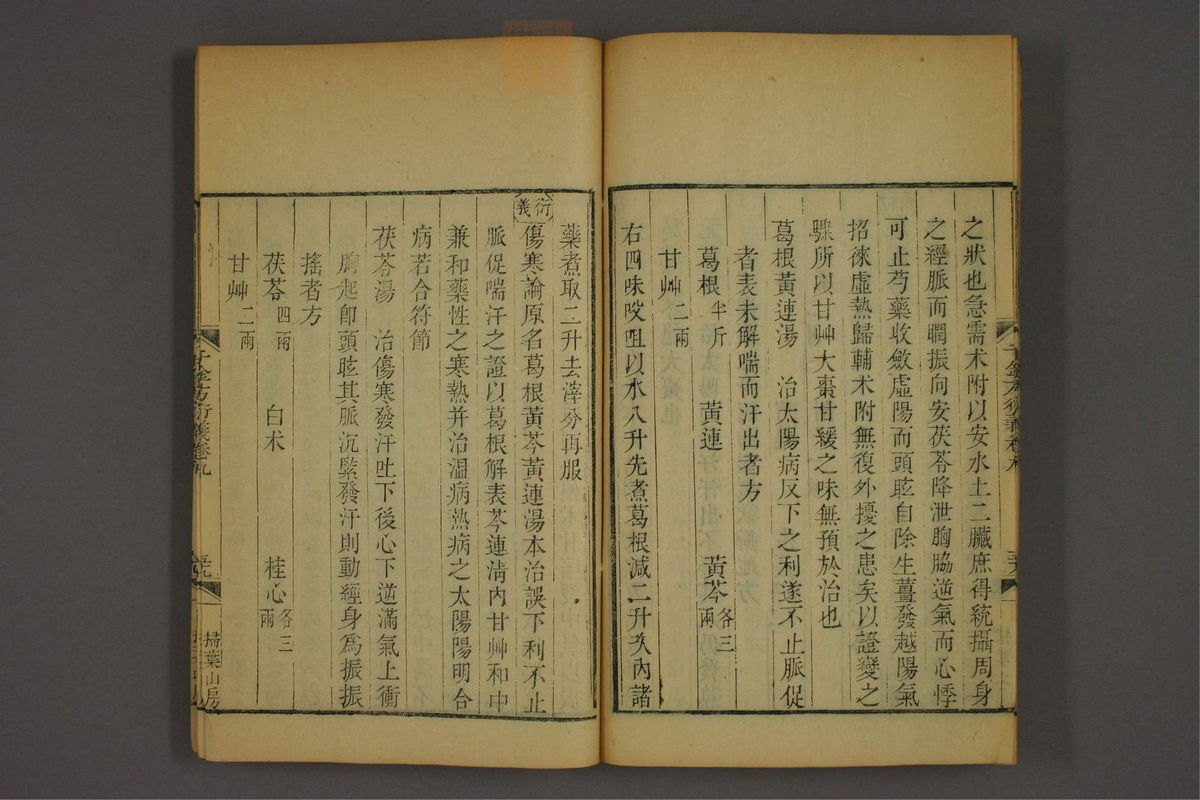 之狀也急需术附以安水土二臟庶得統攝周身
之經脈而瞤振向安茯苓降泄胸脇逆氣而心悸
可止芍藥收斂虛陽而頭眩自除生薑發越陽氣
招徠虛熱歸輔术附無復外擾之患矣以證變之
驟所以甘艸大棗甘緩之味無預於治也
葛根黃連湯　治太陽病反下之利遂不止脈促
者表未解喘而汗出者方
葛根半斤　黃連　黃芩各三兩
甘艸二兩
右四味㕮咀以水八升先煮葛根減二升久內諸
藥煮取二升去滓分再服
衍義
傷寒論原名葛根黃芩黃連湯本治誤下利不止
脈促喘汗之證以葛根解表芩連淸內甘艸和中
兼和藥性之寒熱并治溫病熱病之太陽陽明合
病若合符節
茯苓湯　治傷寒發汗吐下後心下逆滿氣上衝
胸起卽頭眩其脈沉緊發汗則動經身爲振振
搖者方
茯苓四兩　白术　桂心各三兩
甘艸二兩
千金方衍義卷九
掃葉山房